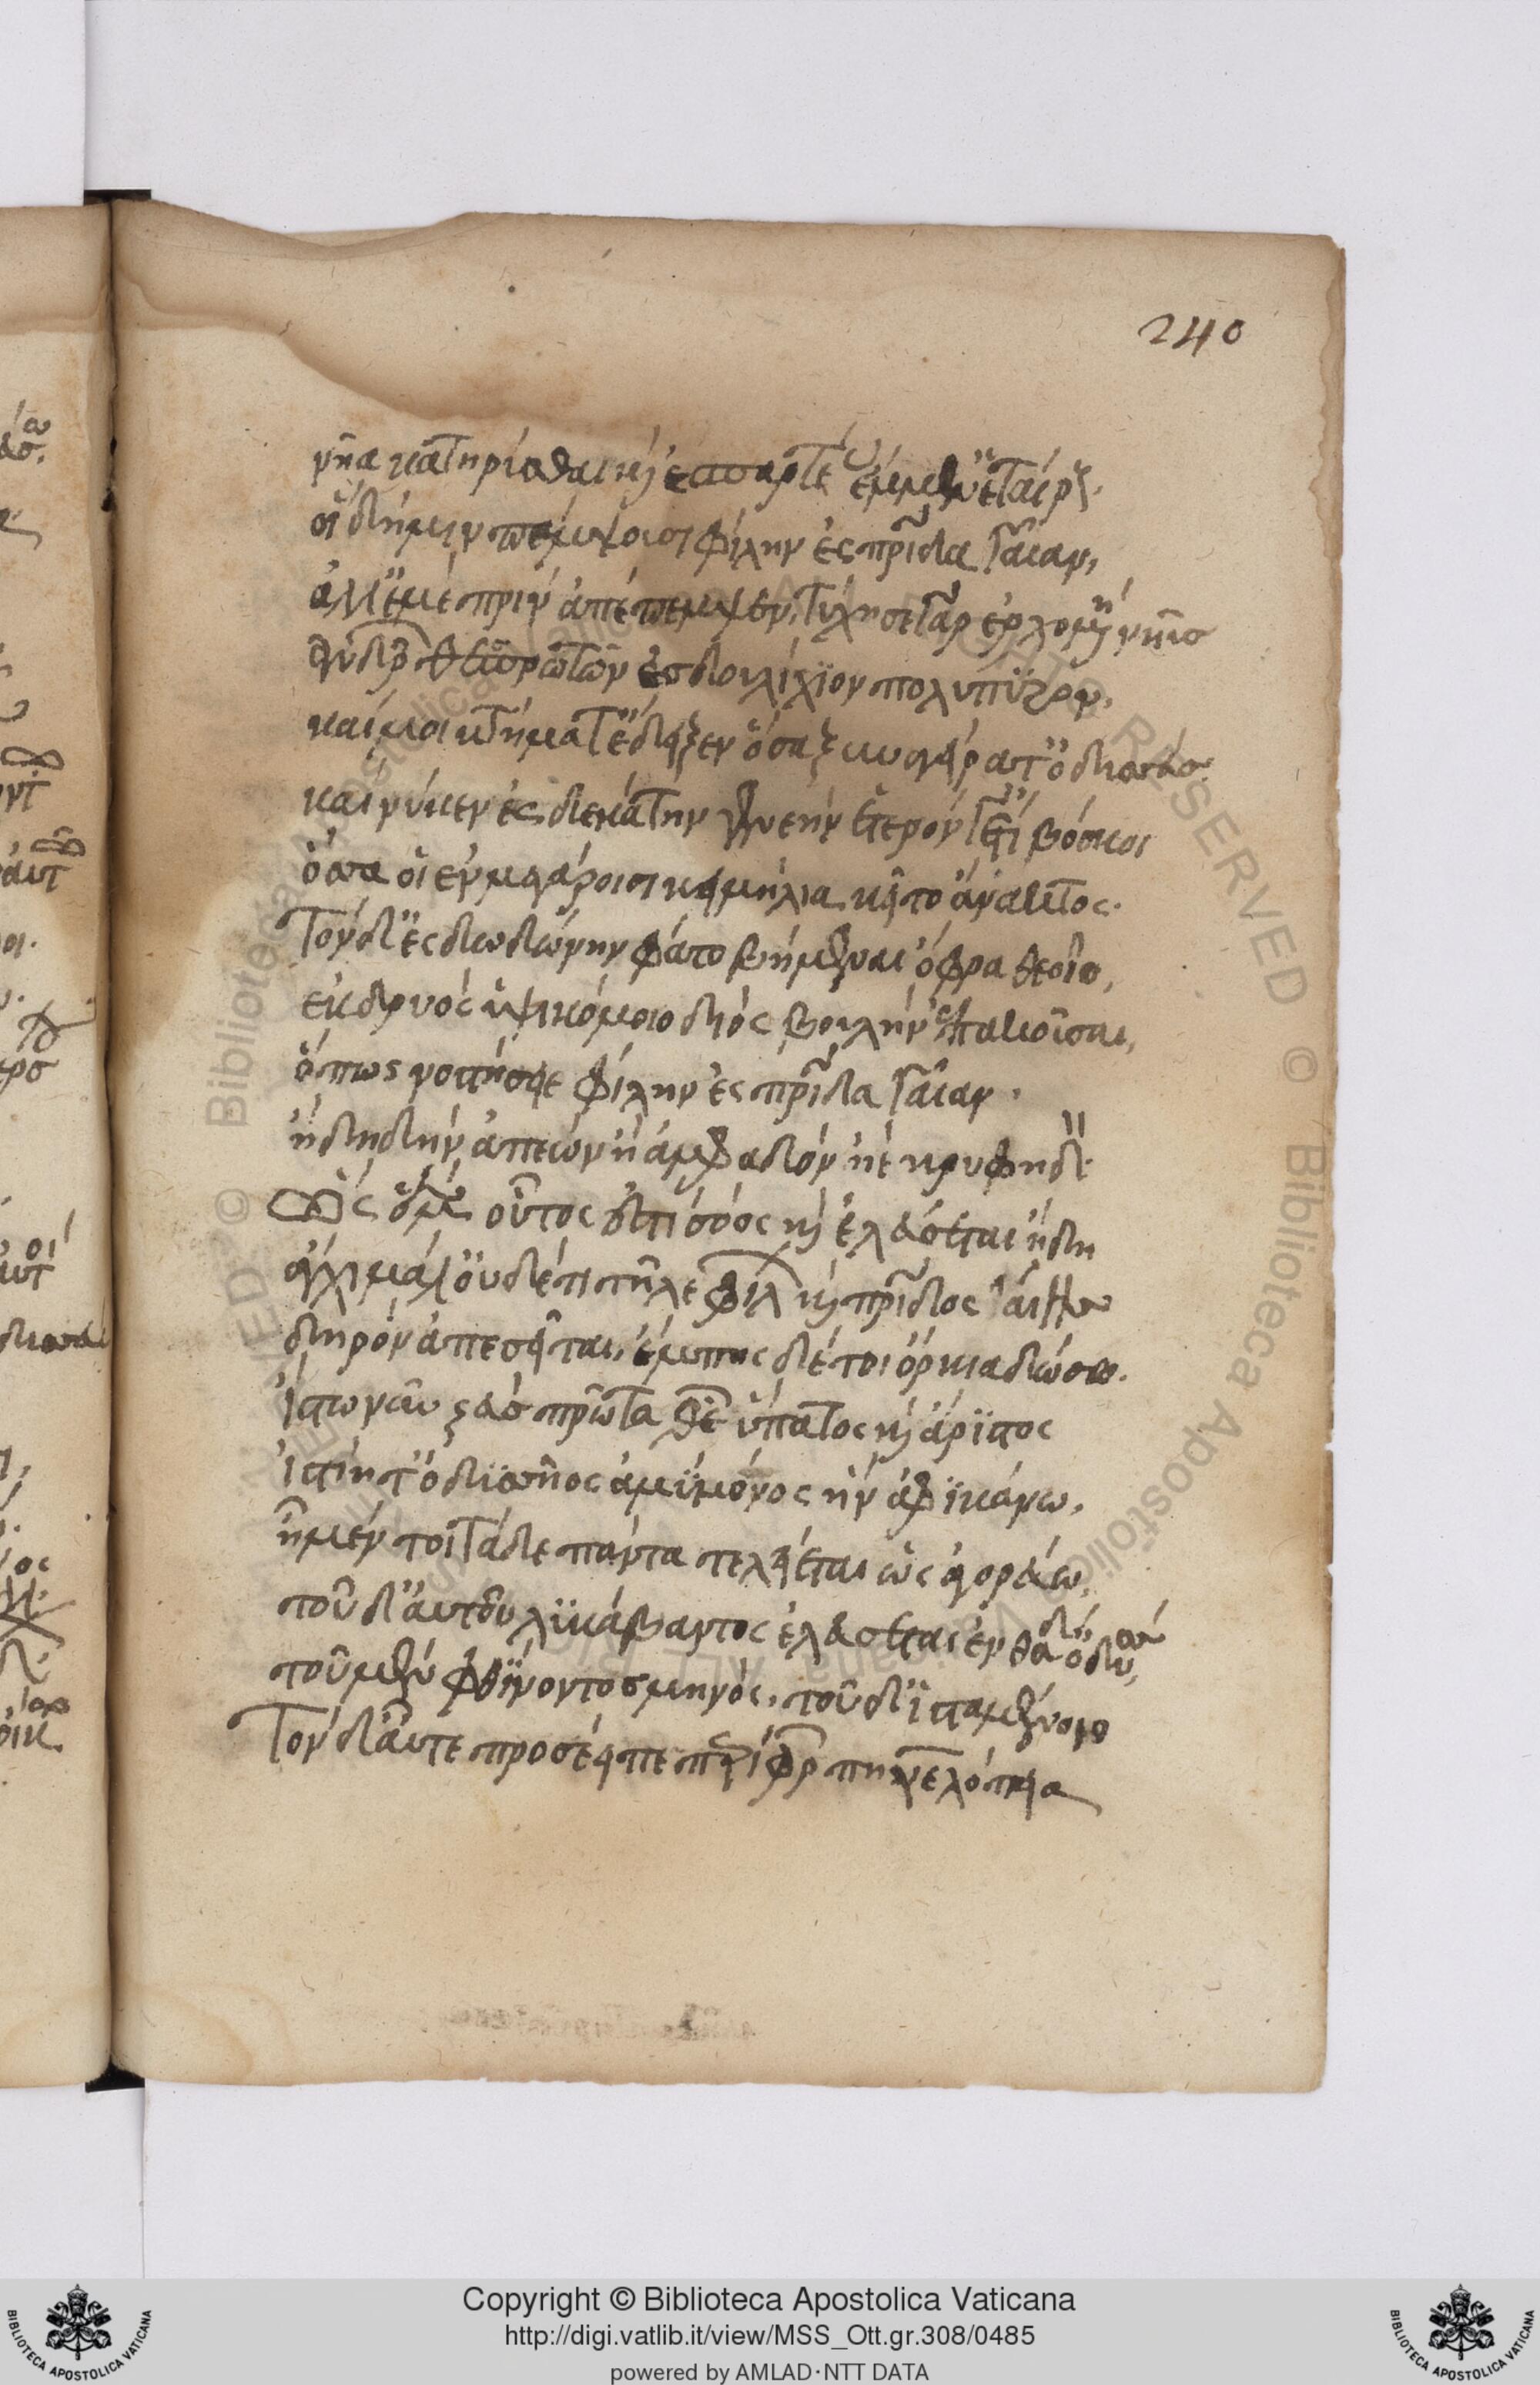 240
νῆα κατηρίσθαι καὶ ἐπαρτέ ἔμμεν ἑταίρους.
οἳ δή μιν πέμψουσι φίλην ἐς πρίδα γαῖαν,
ἀλλ' ἐμὲ πρὶν ἀπέπεμψεν, τύχησε γὰρ ἐρχομένη νηῦσ
ἀνδρῶν θεσπρωτῶν ἐσ δουλίχιον πολύπυρον.
καί μοι κτήματ' ἔδειξεν ὅσα ξυναγείρατ' ὀδυσεύσ.
καί νύ κεν ἐς δεκάτην γενεὴν ἕτερόν γ' ἔτι βόσκοι
ὅσσα οἱ ἐν μεγάροισι κειμήλια κεῖτο ἄνακτος.
Τὸν δ' ἐς δωδώνην φάτο βήμεναι ὄφρα θεοῖο,
ἐκ δρυὸς ὑψικόμοιο διὸς βουλὴν ἐπακοῦσαι,
ὅπως νοστήσειε φίλην ἐς πρίδα γαῖαν.
ἤδη δὴν ἀπεὼν ἢ ἀμφαδὸν ἠὲ κρυφηδ
Ὣς ὁ μὲν οὗτος ἐστὶ σόος καὶ ἐλεύσεται ἤδη
ἄγχι μάλ' οὐδ' ἔτι τῆλε φίλ καὶ πρίδος γαίης
δηρὸν ἀπεσεῖται, ἔμπης δέ τοι ὅρκια δώσω.
ἴστω νῦν ζεύσ πρῶτα θε ὕπατος καὶ ἄριστος
ἱστίη τ' ὀδυσῆος ἀμύμονος ἣν ἀφικάνω,
ἦ μέν τοι τάδε πάντα τελείεται ὡς ἀγορεύω,
τοῦ δ' αὐτοῦ λυκάβαντος ἐλεύσεται ἐνθάδ' ὀδυσεύ,
τοῦ μὲν φθίνοντοσ μηνὸς, τοῦ δ' ἱσταμένοιο
Τὸν δ' αὖτε προσέειπε περίφρ πηνελόπεια
Copyright © Biblioteca Apostolica Vaticana
http://digi.vatlib.it/view/MSS_Ott.gr.308/0485
powered by AMLAD·NTT DATA